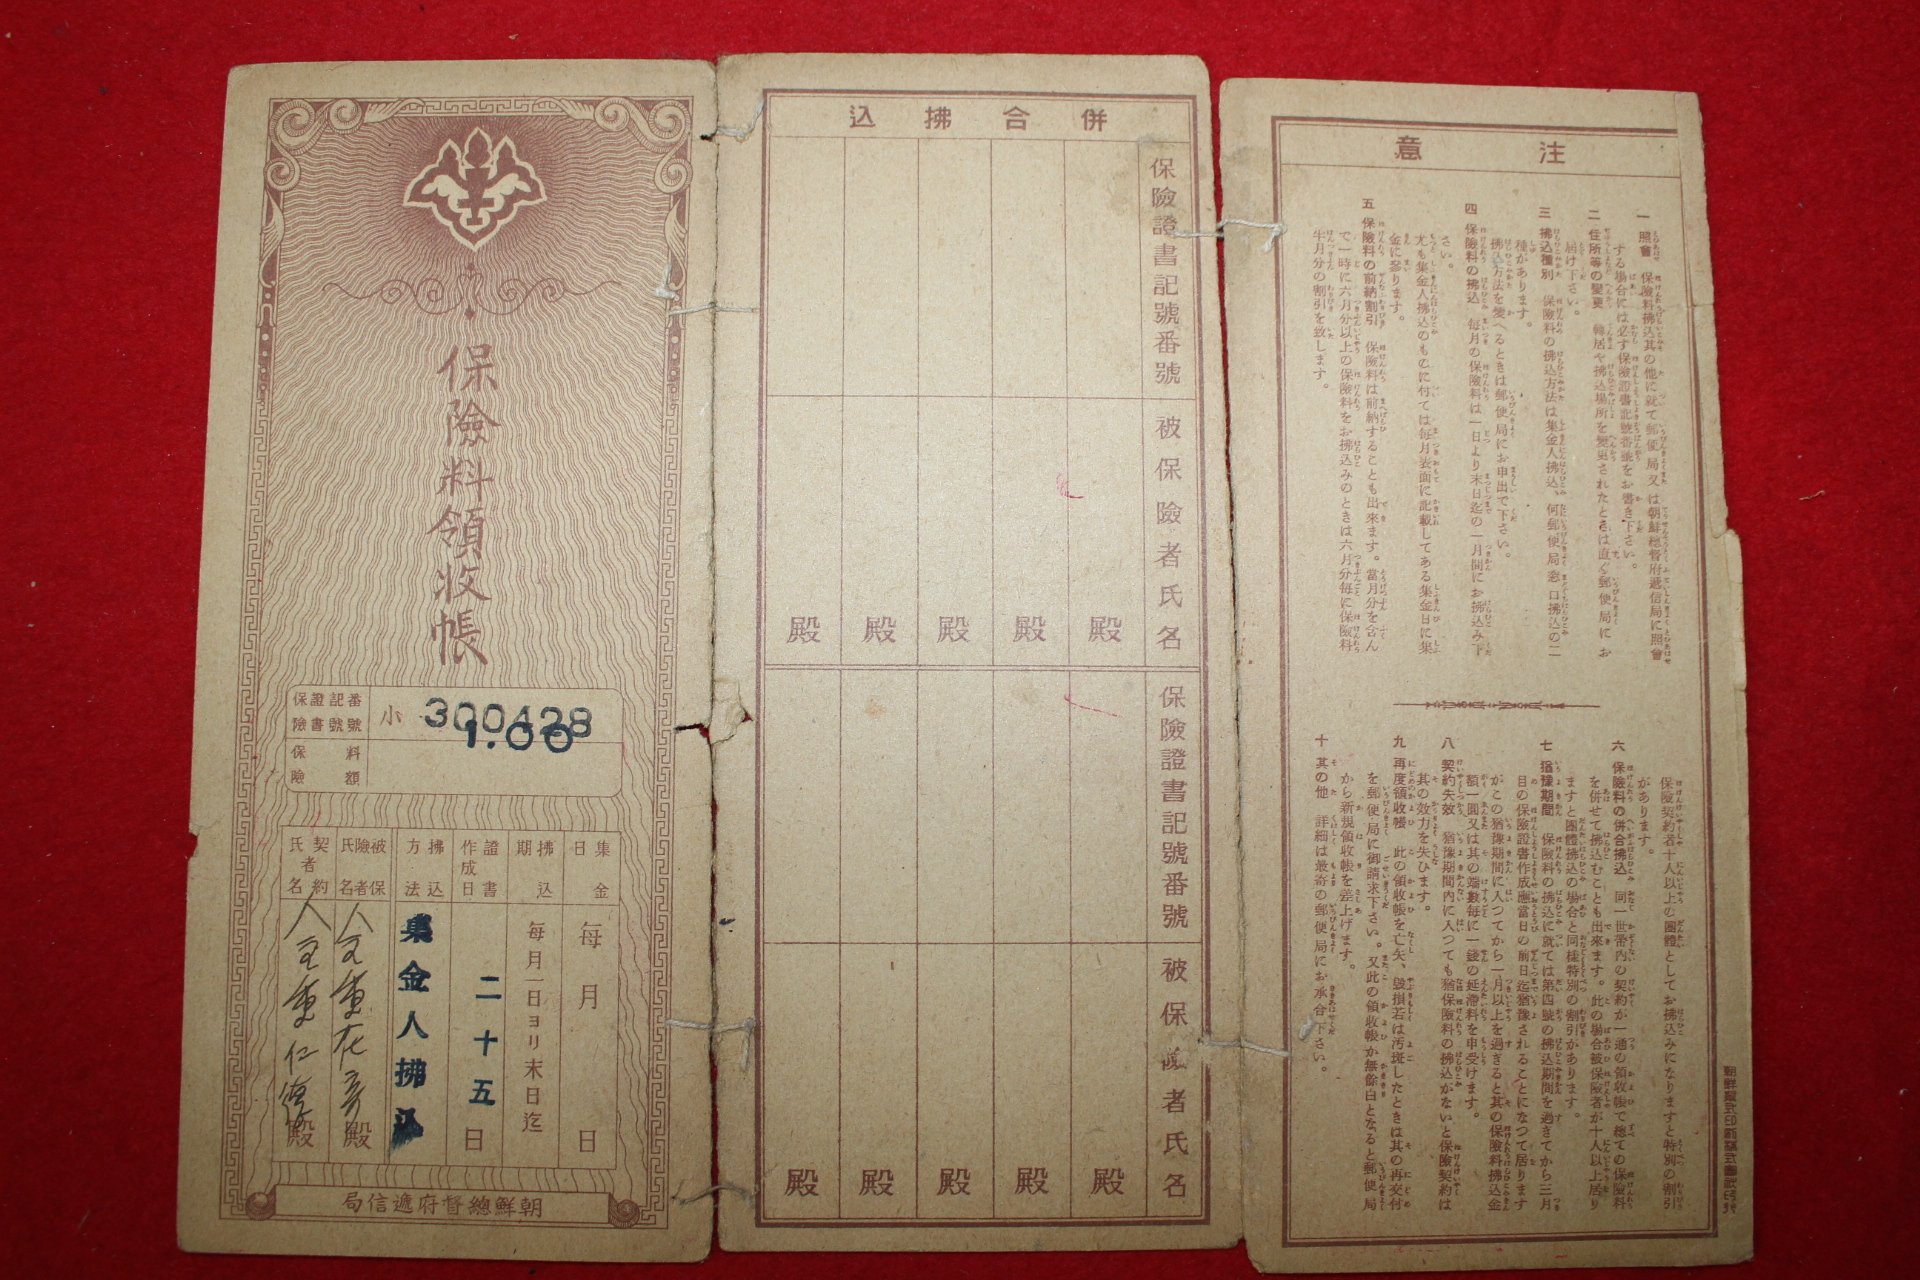 保險料領收帳
保險證書記號番號
小 300428
保險料額
1.00
集金日
每月 日
拂込期
每月一日ヨリ末日迄
證書作成日
二十五日
拂込方法
集金人拂込
被保險者氏名
殿
契約者氏名
殿
朝鮮總督府遞信局
併合拂込
保險證書記號番號
被保險者氏名
殿 殿 殿 殿 殿
保險證書記號番號
被保險者氏名
殿 殿 殿 殿 殿
注意
一 照會 保險料拂込其の他に就て郵便局又は朝鮮總督府遞信局に照會
する場合には必ず保險證書記號番號をお書き下さい。
二 住所等の變更 轉居や拂込場所を變更されたときは直ぐ郵便局にお
届け下さい。
三 拂込種別 保險料の拂込方法は集金人拂込、何郵便局窓口拂込の二
種があります。
拂込方法を變へるときは郵便局にお申出で下さい。
四 保險料の拂込 每月の保險料は一日より末日迄の一月間にお拂込み下
さい。
尤も集金人拂込のものに付ては每月表面に記載してある集金日に集
金に參ります。
五 保險料の前納割引 保險料は前納することも出來ます。當月分を含ん
で一時に六月分以上の保險料をお拂込みのときは六月分每に保險料
半月分の割引を致します。
六 保險料の併合拂込 同一世帶內の契約が一通の領收帳で總ての保險料
を併せて拂込むことも出來ます。此の場合被保險者が十人以上居り
ますと團體拂込の場合と同樣特別の割引があります。
保險契約者十人以上の團體としてお拂込みになりますと特別の割引
があります。
七 猶豫期間 保險料の拂込に就ては第四號の拂込期間を過ぎてから三月
目の保險證書作成應當日の前日迄猶豫されることになつて居ります
がこの猶豫期間に入つてから一月以上を過ぎると其の保險料拂込金
額一圓又は其の端數每に一錢の延滯料を申受けます。
八 契約失效 猶豫期間內に入つても猶保險料の拂込がないと保險契約は
其の效力を失ひます。
九 再度領收帳 此の領收帳を亡失、毀損若は汚斑したときは其の再交付
を郵便局に御請求下さい。又此の領收帳が無餘白となると郵便局
から新規領收帳を差上げます。
十 其の他 詳細は最寄の郵便局にお承合下さい。